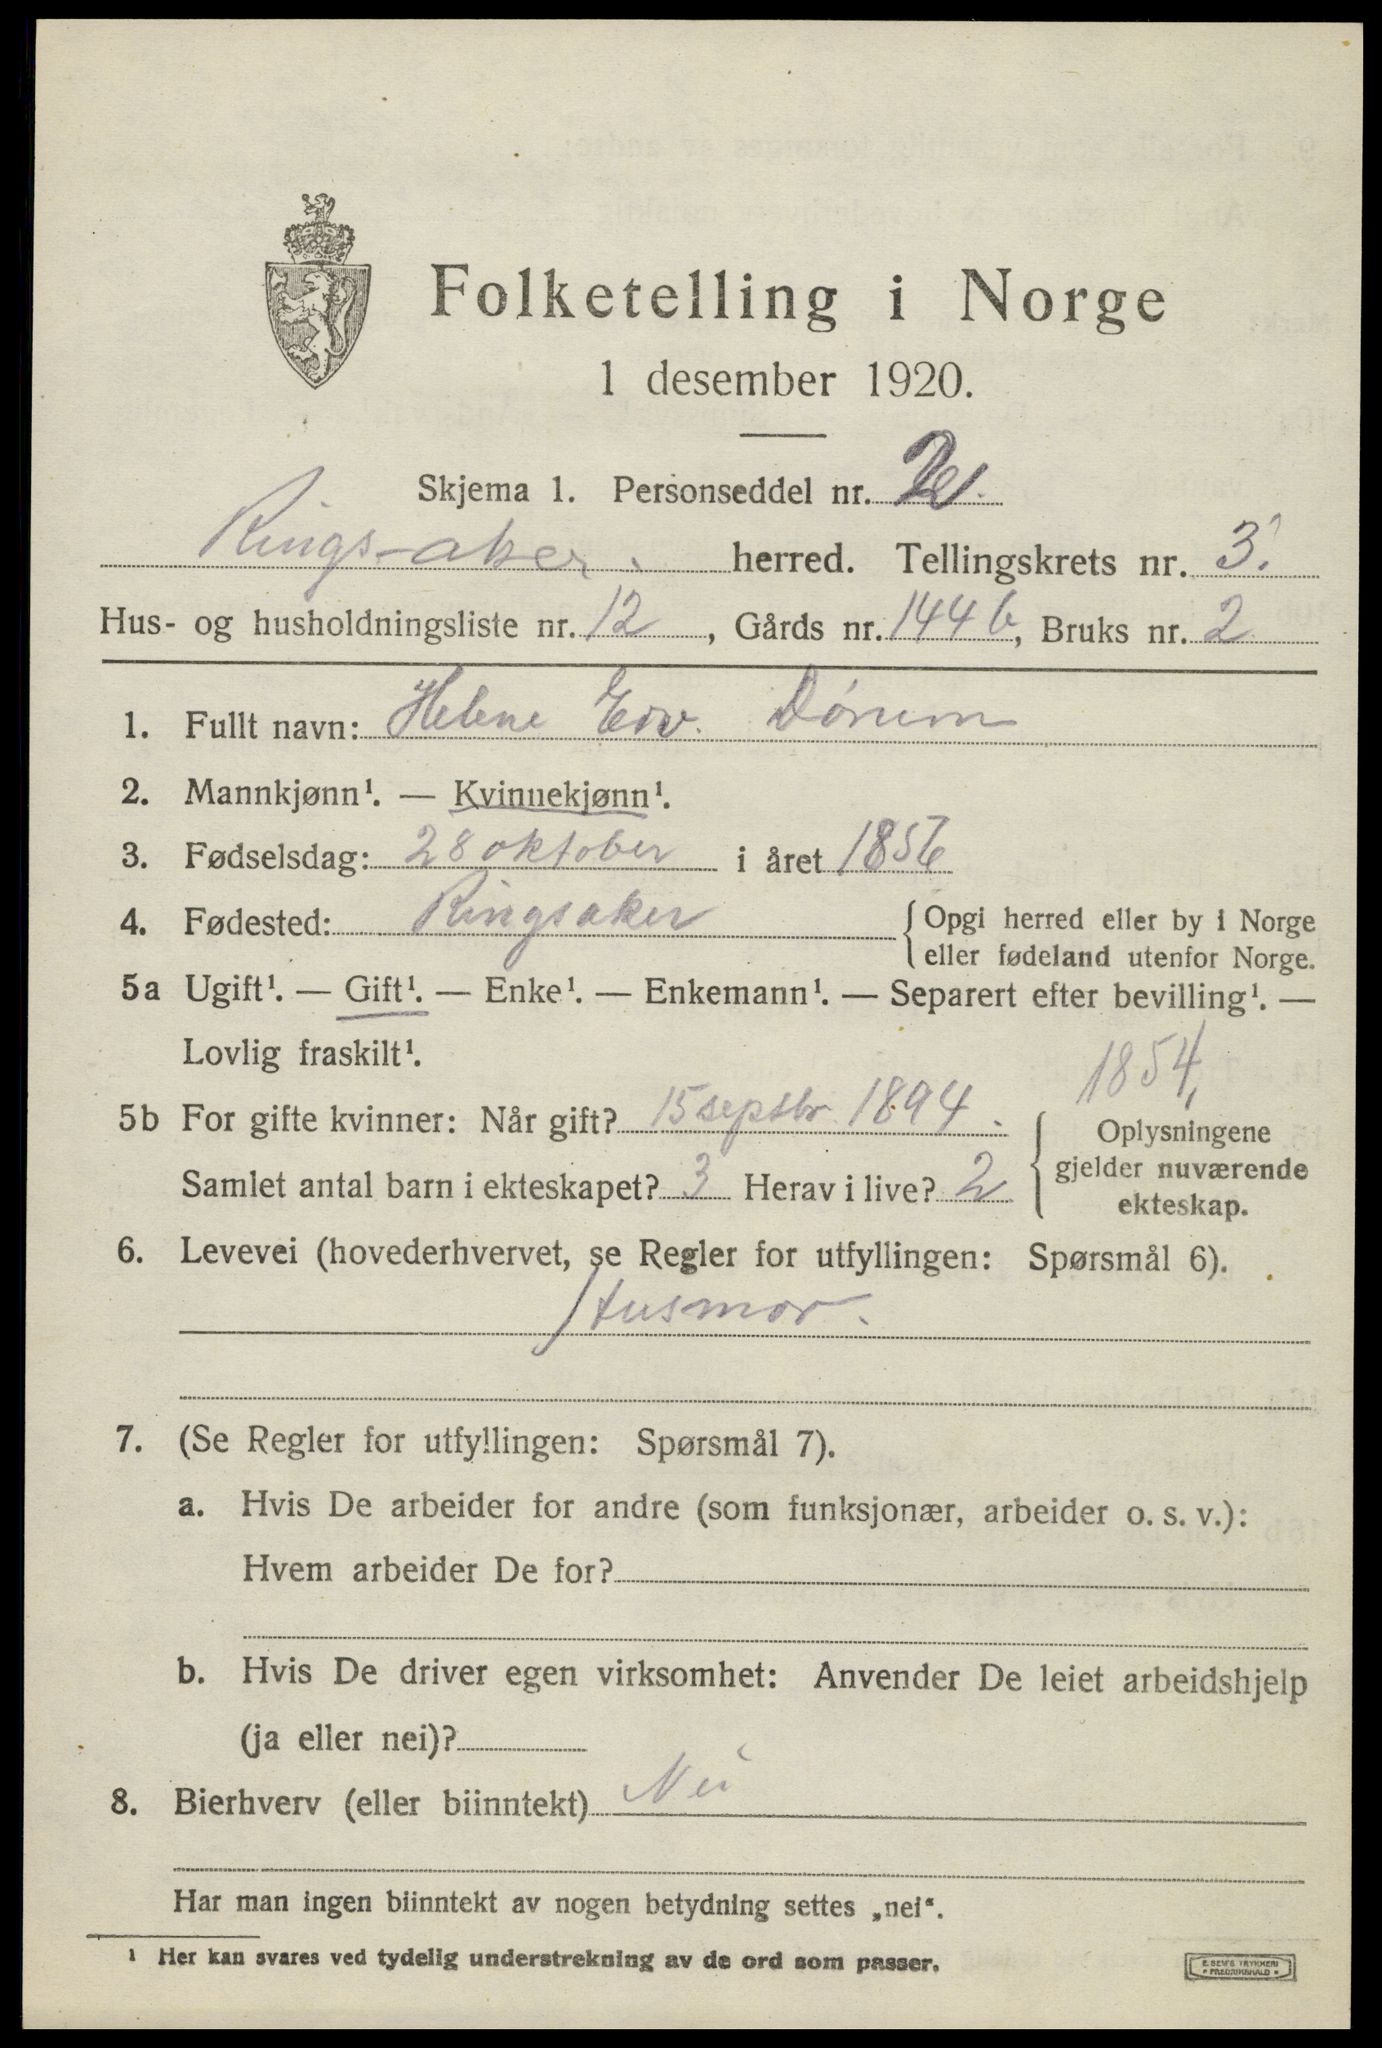 Folketelling i Norge
1 desember 1920.
Skjema 1. Personseddel nr. 2
Ringsaker. herred. Tellingskrets nr. 3.
Hus- og husholdningsliste nr. 12, Gårds nr. 144 b, Bruks nr. 2
1. Fullt navn: Helene Edv. Dørum
2. Mannkjønn¹. — Kvinnekjønn¹.
3. Fødselsdag: 28 oktober i året 1856
4. Fødested: Ringsaker { Opgi herred eller by i Norge
eller fødeland utenfor Norge.
5a Ugift¹. — Gift¹. — Enke¹. — Enkemann¹. — Separert efter bevilling¹. —
Lovlig fraskilt¹.
1854,
5b For gifte kvinner: Når gift? 15 septbr. 1894. { Oplysningene
gjelder nuværende
Samlet antal barn i ekteskapet? 3 Herav i live? 2
ekteskap.
6. Levevei (hovederhvervet, se Regler for utfyllingen: Spørsmål 6).
Husmor.
7. (Se Regler for utfyllingen: Spørsmål 7).
a. Hvis De arbeider for andre (som funksjonær, arbeider o. s. v.):
Hvem arbeider De for?
b. Hvis De driver egen virksomhet: Anvender De leiet arbeidshjelp
(ja eller nei)?
8. Bierhverv (eller biinntekt) Nei
Har man ingen biinntekt av nogen betydning settes „nei“.
¹ Her kan svares ved tydelig understrekning av de ord som passer.
E. SEM'S TRYKKERI
• FREDRIKSHALD •